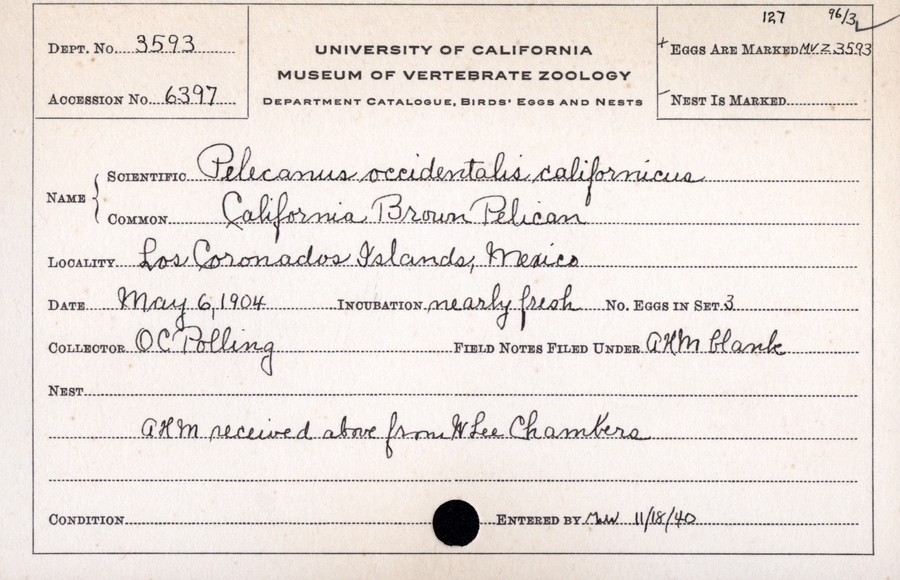 127 96/3
Dept. No. 3593
UNIVERSITY OF CALIFORNIA
+ Eggs Are Marked MVZ 3593
MUSEUM OF VERTEBRATE ZOOLOGY
Accession No. 6397
Department Catalogue, Birds' Eggs and Nests
- Nest Is Marked
Name { Scientific Pelecanus occidentalis californicus
Common California Brown Pelican
Locality Los Coronados Islands, Mexico
Date May 6, 1904 Incubation nearly fresh No. Eggs in Set 3
Collector O C Polling Field Notes Filed Under AHM blank
Nest
AHM received above from W Lee Chambers
Condition Entered by 11/18/40